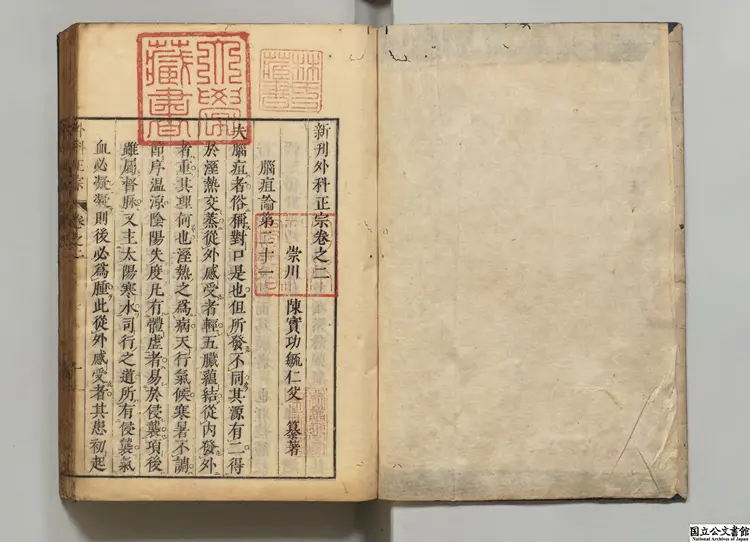 新刊外科正宗卷之二
崇川 陳實功毓仁父 纂著
腦疽論第二十一
夫腦疽者俗稱對口是也但所發不同其源有二得
於溼熱交蒸從外感受者輕五臟蘊結從內發外
者重其理何也溼熱之為病天行氣候寒暑不調
節序溫涼陰陽失度凡有體虛者易於侵襲項後
雖屬督脉又主太陽寒水司行之道所有侵襲氣
血必凝凝則後必為腫此從外感受者其患初起
外科正宗
卷之二
藏書
國立公文書館
National Archives of Japan